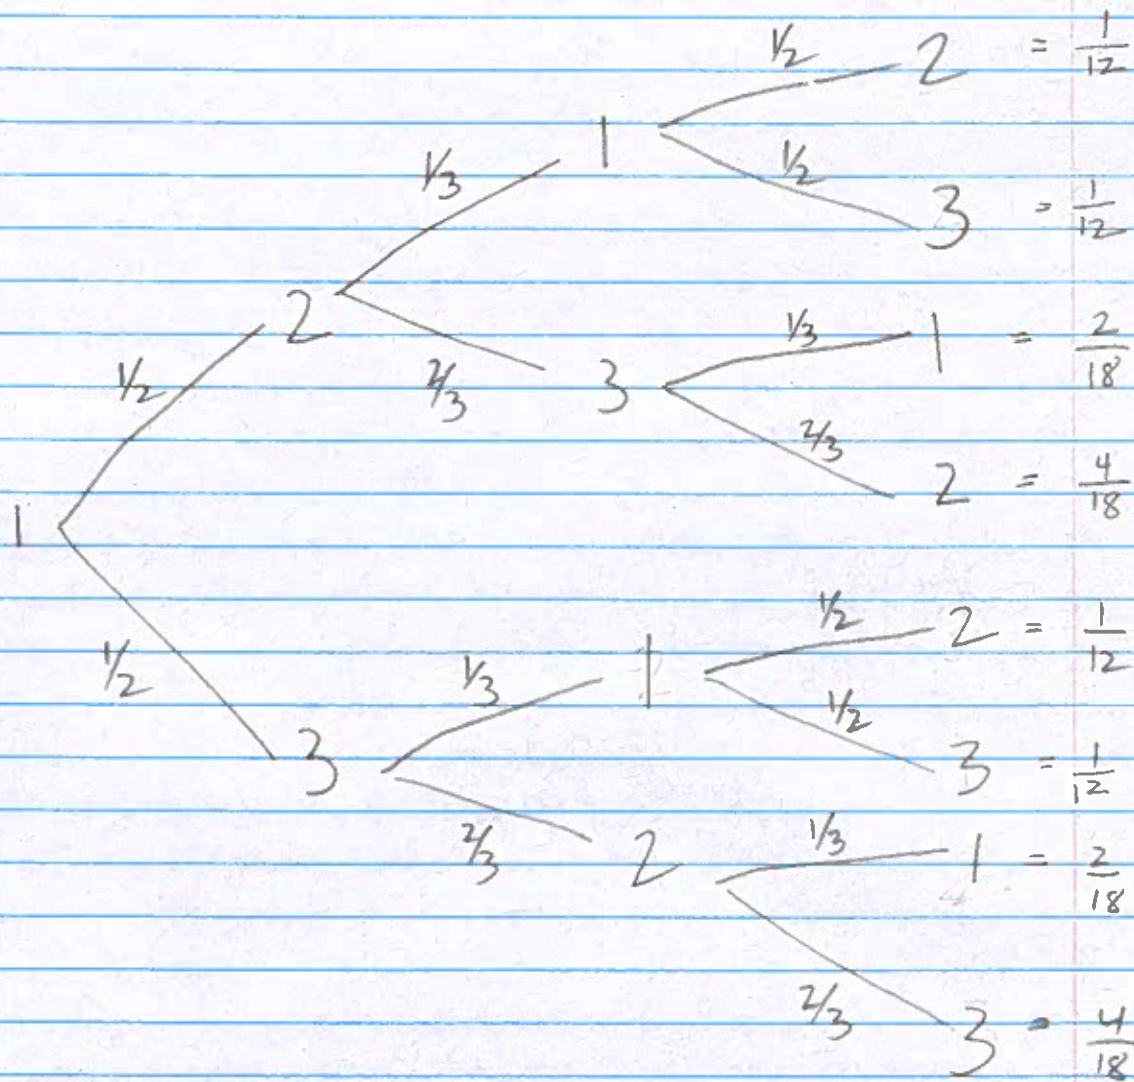 1/2 2 = 1/12
1
1/3 1/2 3 = 1/12
2
1/2 2/3 3 1/3 1 = 2/18
2/3 2 = 4/18
1
1/2 1/3 1 1/2 2 = 1/12
1/2 3 = 1/12
3
2/3 2 1/3 1 = 2/18
2/3 3 = 4/18